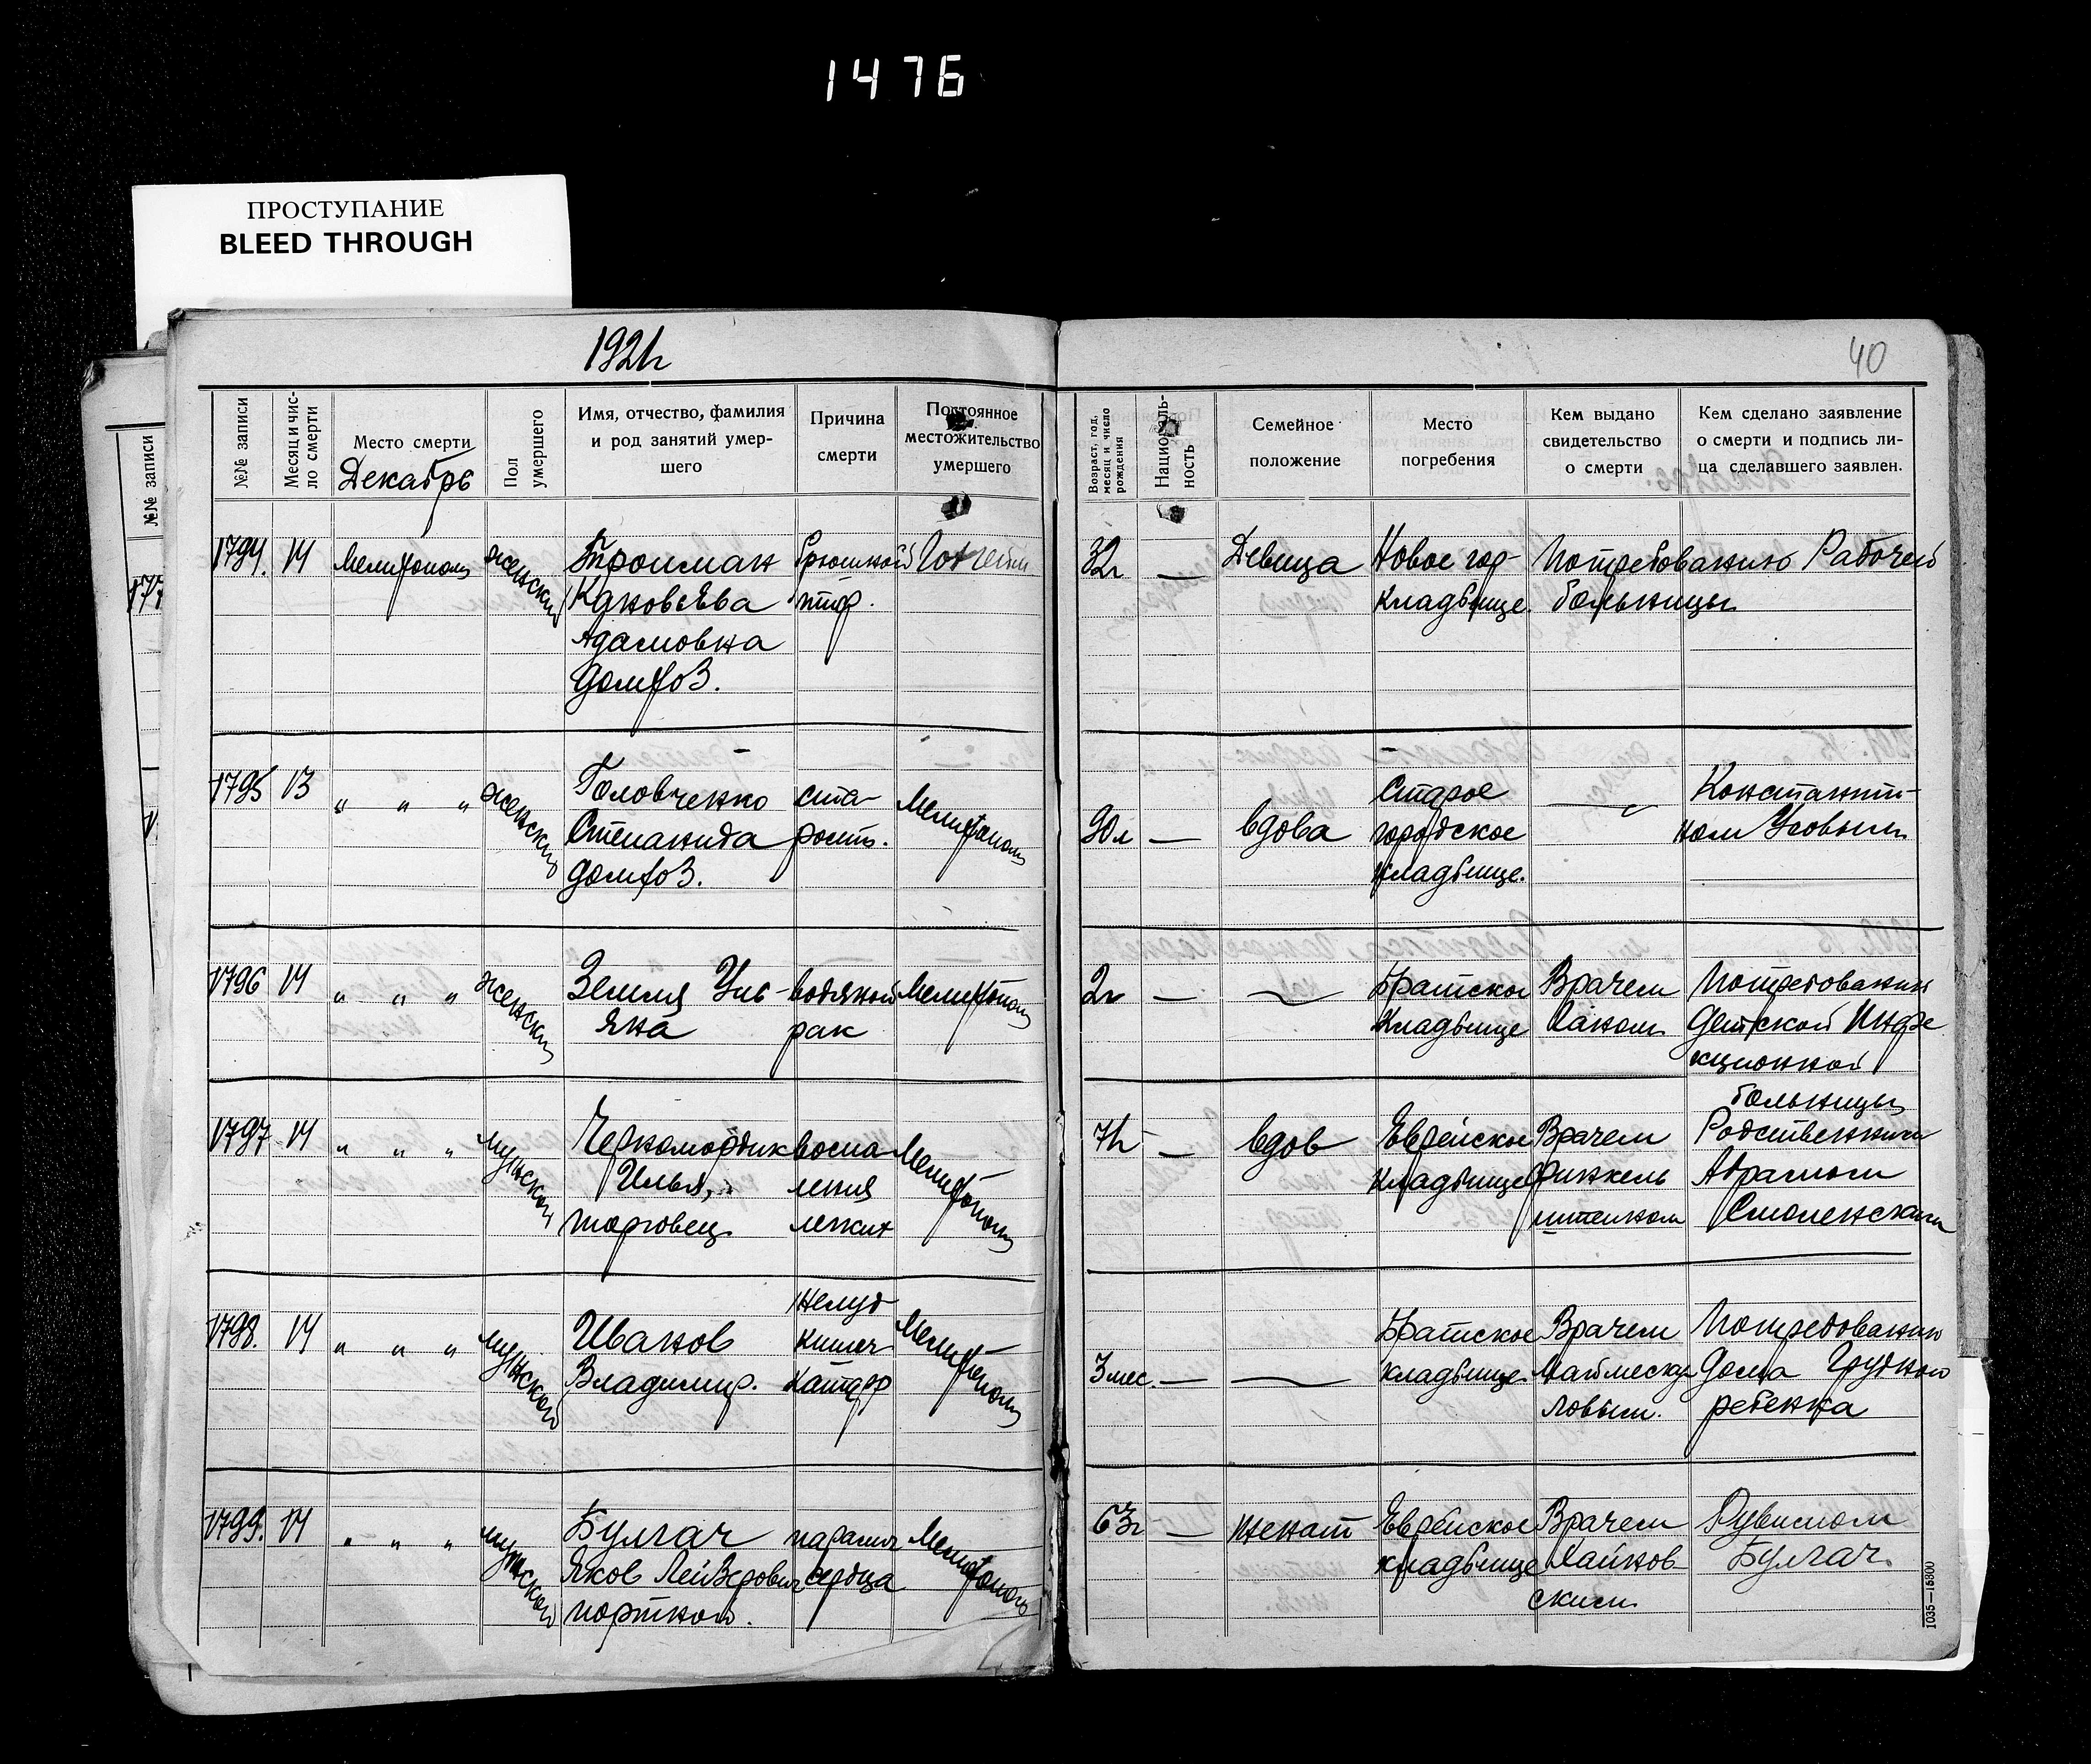 1476
ПРОСТУПАНИЕ
BLEED THROUGH
1921г
40
№№ записи
Месяц и чис-
ло смерти
Место смерти
Декабрь
Пол
умершего
Имя, отчество, фамилия
и род занятий умер-
шего
Причина
смерти
Постоянное
местожительство
умершего
Возраст, год,
месяц и число
рождения
Националь-
ность
Семейное
положение
Место
погребения
Кем выдано
свидетельство
о смерти
Кем сделано заявление
о смерти и подпись ли-
ца сделавшего заявлен.
№№ записи
177
1794. 14 Мелитополь женский
Троцман
Адамовна
домхоз.
брюшной
тиф.
32г — Девица
Новое гор
кладбище.
По требованию Рабочей
больницы
1795 13 " " " женский
Головченко
Степанида
домхоз.
ста-
рость.
Мелитополь
90л — вдова
Старое
городское
кладбище.
—
Константи-
ном
1796 14 " " " женский
Земля Уль-
яна
водяной
рак
Мелитополь
2г — —
Братское
кладбище
Врачем
По требованию
детской Инфе
кционной
больницы
1797 14 " " " мужской
Черномордик
Илья,
торговец
воспа
ления
легких
Мелитополь
71г — вдов
Еврейское
кладбище
Врачем
Финкель
штейном
Родственником
Абрамом
Смоленским
1798. 14 " " " мужской
Иванов
Владимир.
Желуд
кишеч
катарр
Мелитополь
3мес. — —
Братское
кладбище
Врачем
По требованию
Дома Грудного
ребенка
1799. 14 " " " мужской
Булгач
Яков Лейзерович
портной.
паралич
сердца
Мелитополь
63г — женат
Еврейское
кладбище
Врачем
Хайнов
ским
Рувимом
Булгач.
1035—15800